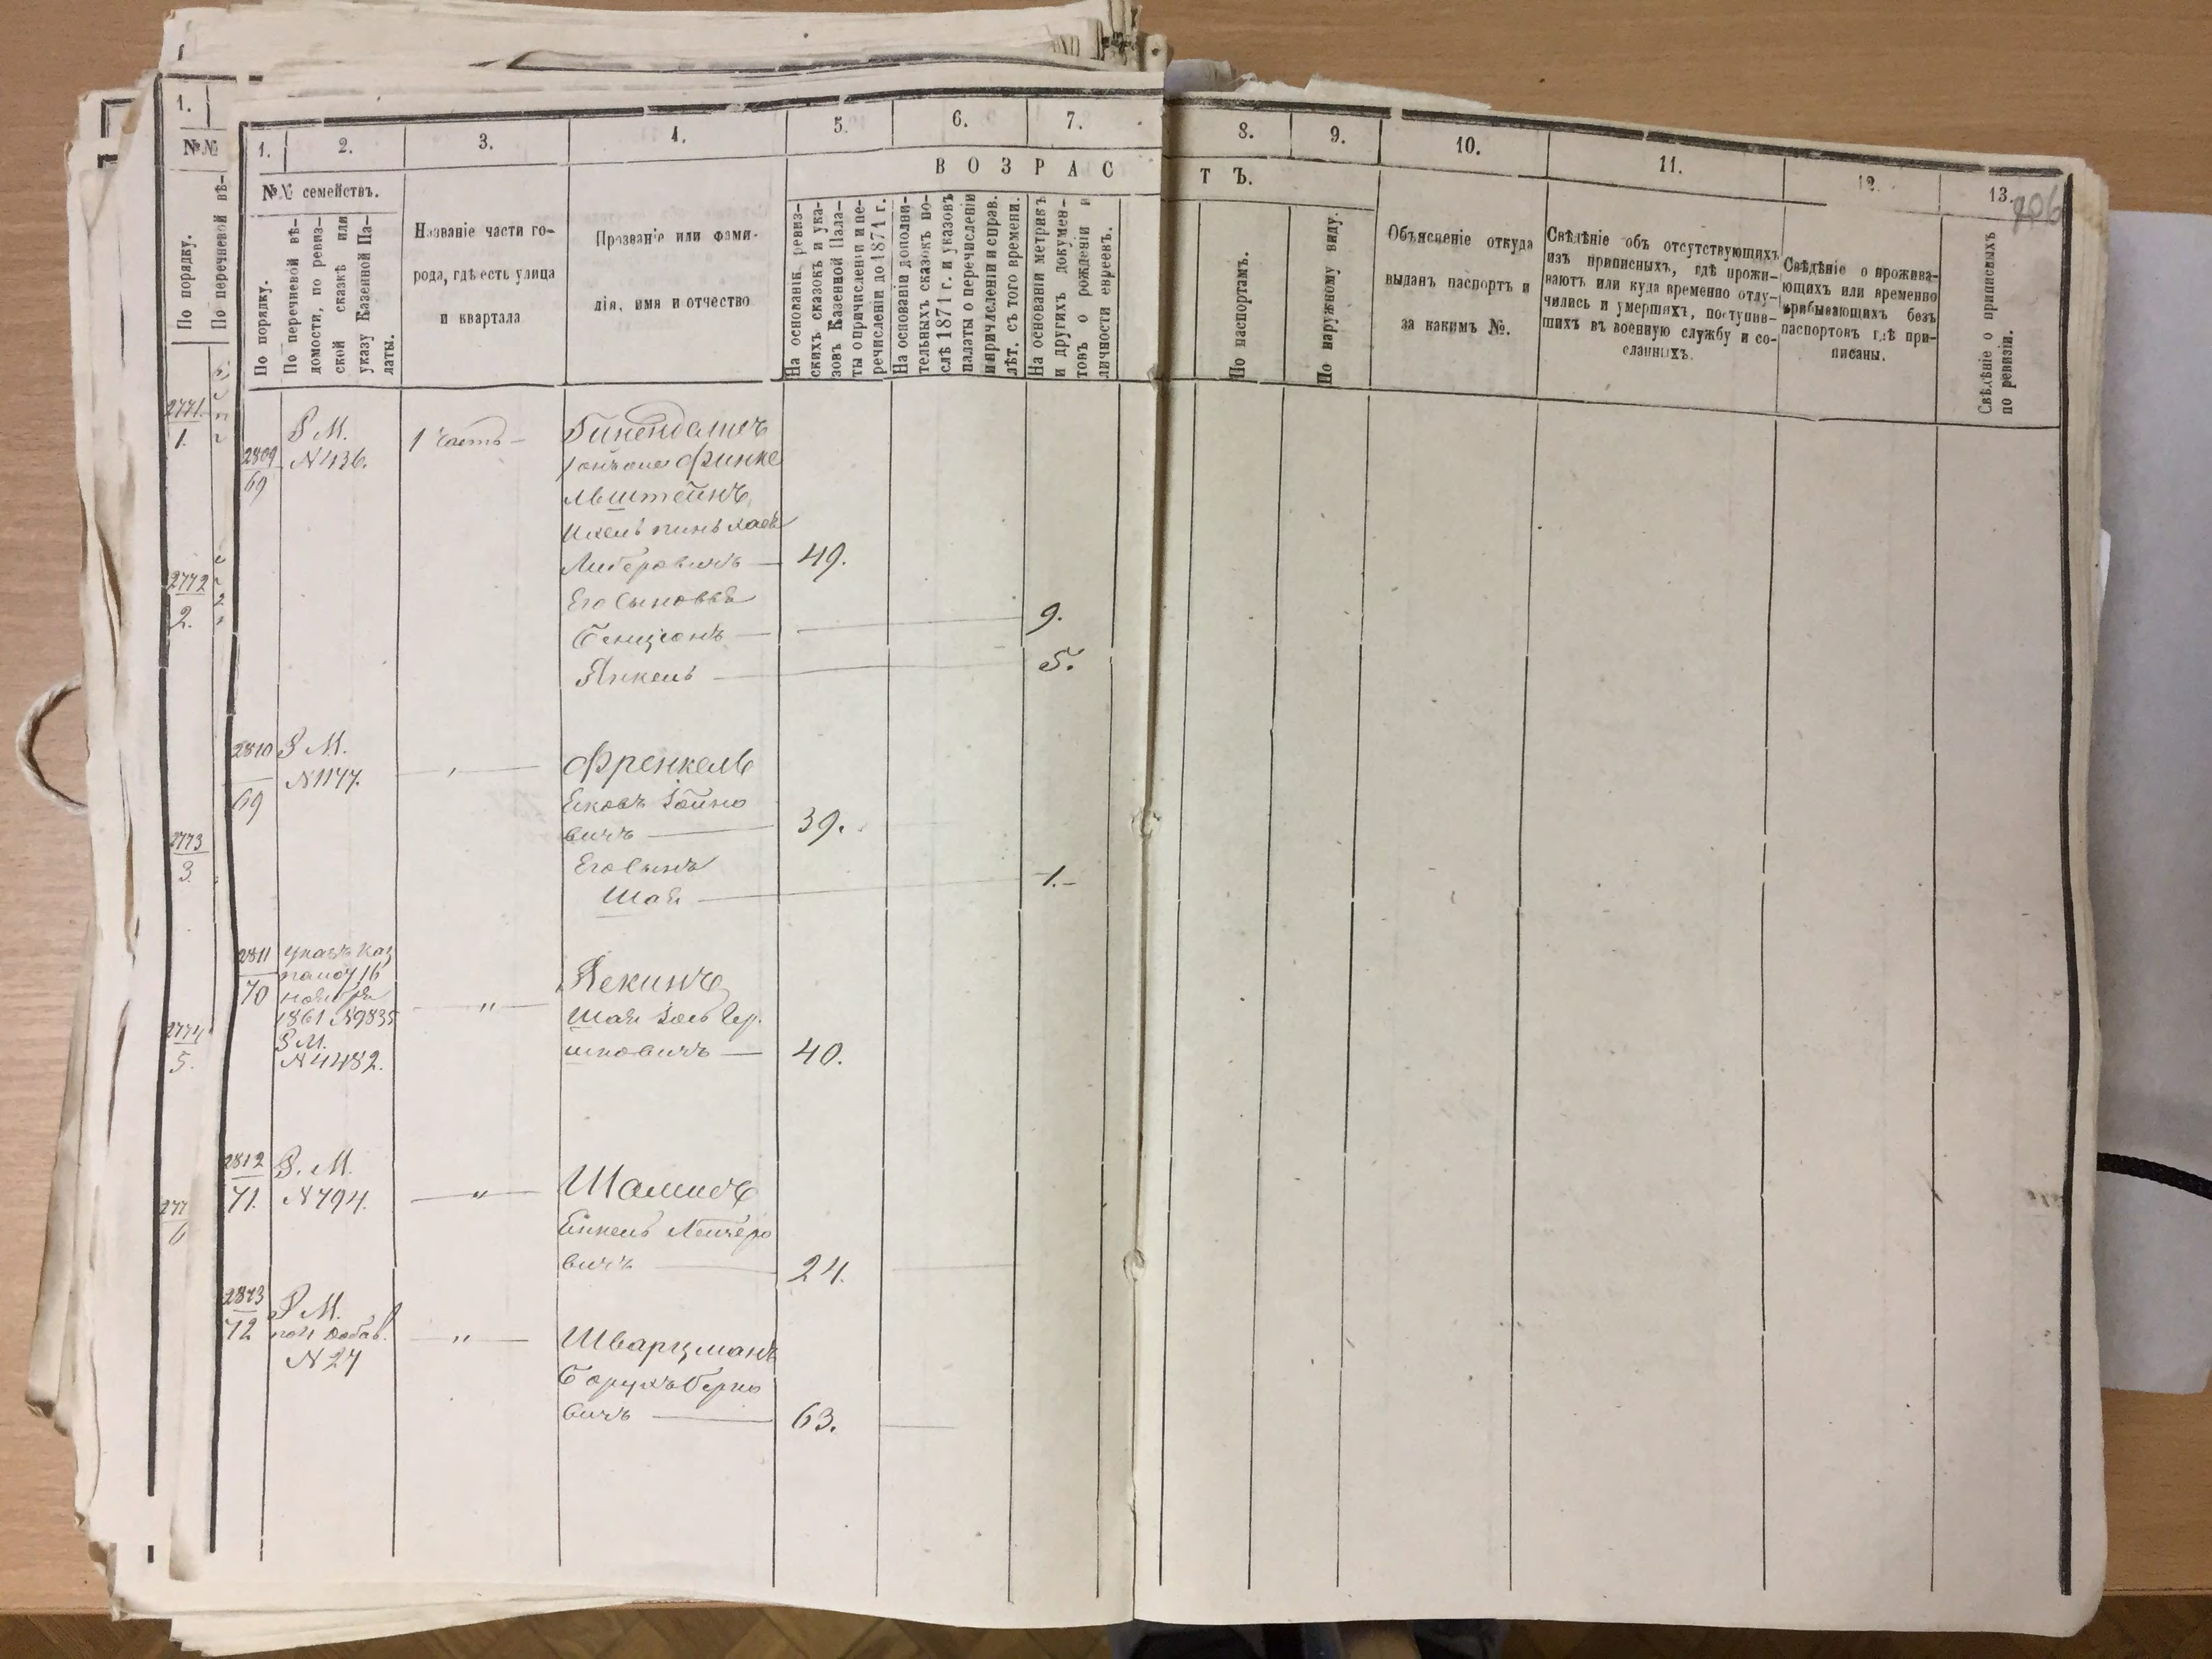 1.
№№
По порядку.
По перечневой вѣ-
2771.
1.
2772
2.
2773
3.
2774
5.
277
6
1.
2.
3.
4.
5.
6.
7.
8.
9.
10.
11.
12.
13.
906
№№ семействъ.
ВОЗРАС
ТЪ.
По порядку.
По перечневой вѣ-
домости, по ревиз-
ской сказкѣ или
указу Казенной Па-
латы.
Названіе части го-
рода, гдѣ есть улица
и квартала
Прозваніе или фами-
лія, имя и отчество
На основаніи ревиз-
скихъ сказокъ и ука-
зовъ Казенной Пала-
ты о причисленіи и пе-
речисленіи до 1871 г.
На основаніи дополни-
тельныхъ сказокъ по-
слѣ 1871 г. и указовъ
палаты о перечисленіи
и причисленіи и справ.
лѣт. съ того времени.
На основаніи метрикъ
и другихъ докумен-
товъ о рожденіи и
личности евреевъ.
По паспортамъ.
По наружному виду.
Объясненіе откуда
выданъ паспортъ и
за какимъ №.
Свѣдѣніе объ отсутствующихъ
изъ приписныхъ, гдѣ прожи-
ваютъ или куда временно отлу-
чились и умершихъ, поступив-
шихъ въ военную службу и со-
сланныхъ.
Свѣдѣніе о прожива-
ющихъ или временно
прибывающихъ безъ
паспортовъ гдѣ при-
писаны.
Свѣдѣніе о приписныхъ
по ревизіи.
2809
69
Р М.
N 436.
1 часть —
Финке
льштейнъ
Либеровичъ — 49.
Его сыновья
Бенціонъ — 9.
Янкель — 5.
2810
69
Р М.
N 1177.
Френкель
вичъ — 39.
Его сынъ
Шая — 1.
2811
70
указъ каз
палаты 16
ноября
1861 N 9835
Р М.
N 4482.
"
Шая Гер.
шковичъ — 40.
2812
71.
Р. М.
N 794.
"
Янкель Лейзеро
вичъ — 24.
2813
72
Р М.
добав.
N 27
"
Шварцманъ
Борухъ Берко
вичъ — 63.